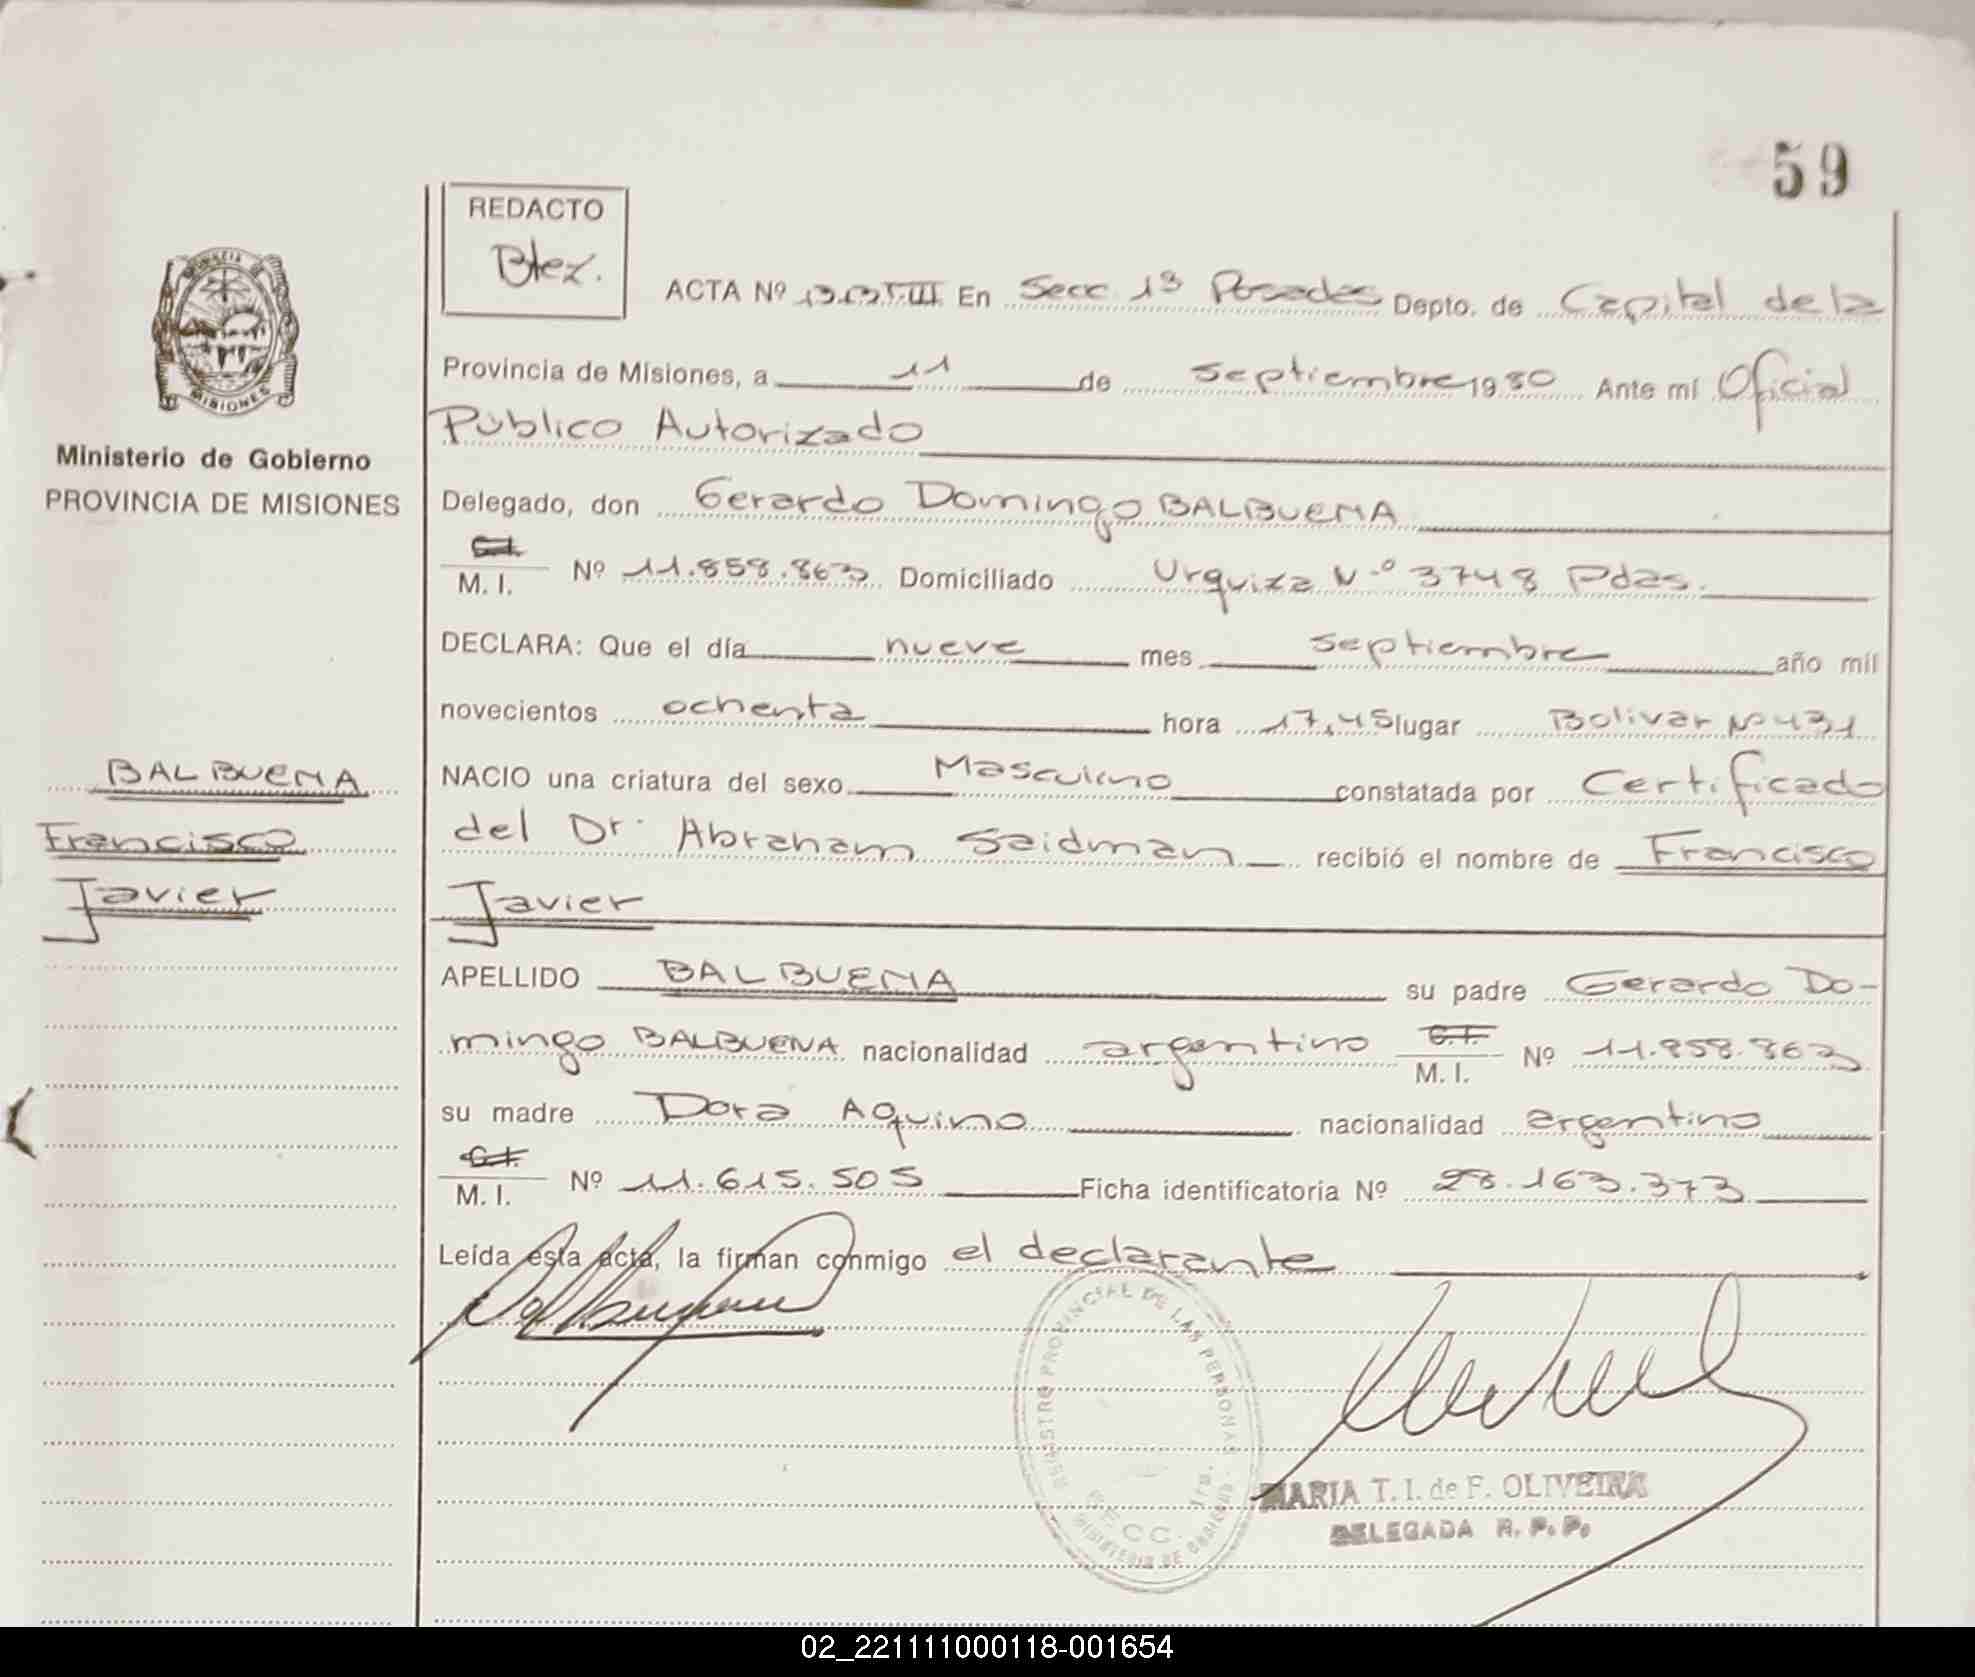 59
REDACTO
Btez.
ACTA Nº 1313T.III En Secc 1ª Posadas Depto. de Capital de la
Provincia de Misiones, a 11 de septiembre 1980 Ante mí Oficial
Público Autorizado
Delegado, don Gerardo Domingo BALBUENA
C.I. M. I. Nº 11.858.863 Domiciliado Urquiza N.º 3748 Pdas.
DECLARA: Que el día nueve mes septiembre año mil
novecientos ochenta hora 17,45 lugar Bolivar Nº 431
NACIO una criatura del sexo Masculino constatada por Certificado
del Dr. Abraham Saidman recibió el nombre de Francisco
Javier
APELLIDO BALBUENA su padre Gerardo Do-
mingo BALBUENA nacionalidad argentino C.I. M. I. Nº 11.858.863
su madre Dora Aquino nacionalidad argentino
C.I. M. I. Nº 11.615.505 Ficha identificatoria Nº 28.163.373
Leída esta acta, la firman conmigo el declarante
PROVINCIA DE
MISIONES
Ministerio de Gobierno
PROVINCIA DE MISIONES
BALBUENA
Francisco
Javier
REGISTRO PROVINCIAL DE LAS PERSONAS
SECC. 1ra.
MINISTERIO DE GOBIERNO
MARIA T. I. de F. OLIVEIRA
DELEGADA R. P. P.
02_221111000118-001654